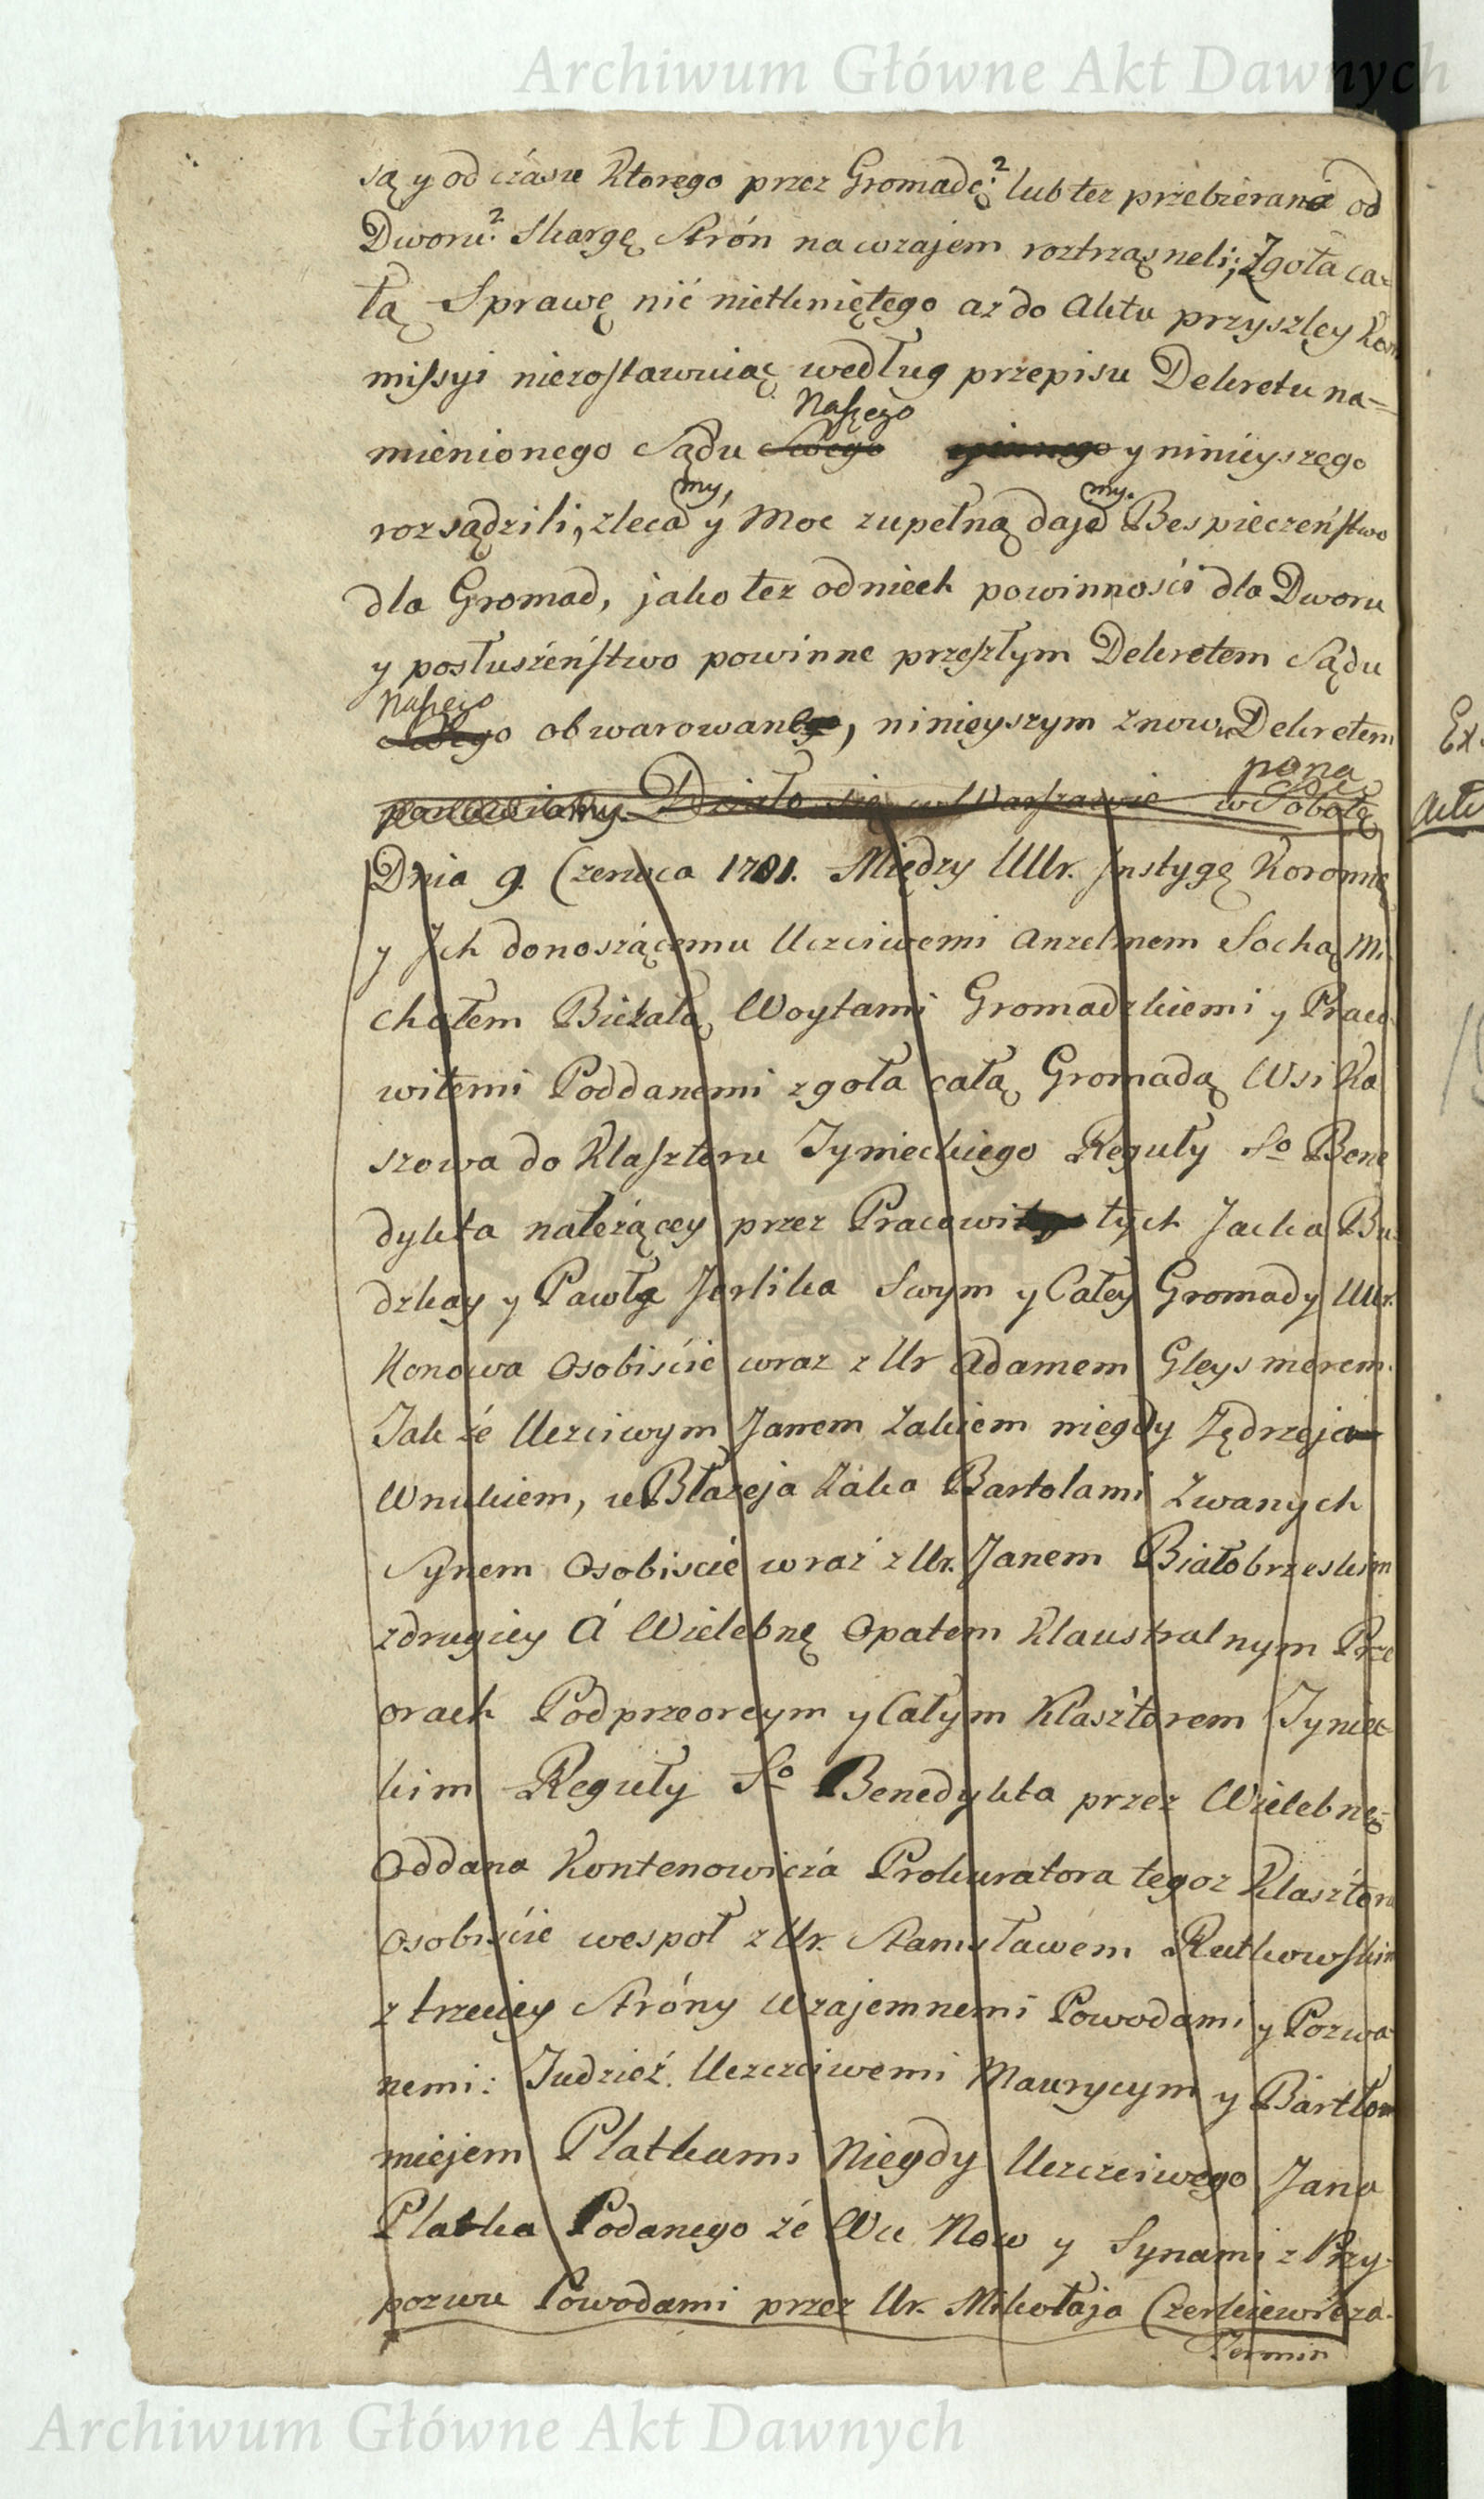 Archiwum Główne Akt Dawnych
są y od czasu ktorego przez Gromadę:² lub tez przebierana od
Dworu:² Skargę Strón nawzajem roztrząsneli; Zgoła ca-
łą Sprawę nic nietkniętego aż do Aktu przyszłey Kom
missyi niezostawuiąc według przepisu Dekretu na-
Naszego
mienionego Sądu Swego y ninieyszego
my, my.
rozsądzili, zleca y Moc zupełną daje Bespieczeństwo
dla Gromad, jako tez od niech powinności dla Dworu
y posłuszeństwo powinne przeszłym Dekretem Sądu
Naszego
Swego obwarowane, ninieyszym znowu Dekretem
pona
ponawiamy. Działo się w Warszawie w Sobotę
Dnia 9. Czerwca 1781. Między UUr. Instygę Koronnę
y Jch donoszącemu Uczciwemi Anzelmem Sochą Mi
chałem Bieżałą Woytami Gromadzkiemi y Praco
witemi Poddanemi zgoła całą Gromadą Wsi Ka
szowa do Klasztoru Tynieckiego Reguły So Bene
dykta należącey przez Pracowitych Jacka Bu
dzkay y Pawła Jerlika Swym y Całey Gromady UUr.
Konowa Osobiście wraz z Ur Adamem Gleysmerem.
Jak że Uczciwym Janem Żakiem niegdy Jędrzeja
Wnukiem, u Błażeja Żaka Bartolami Zwanych
Synem Osobiscie wraz z Ur. Janem Białobrzeskim
z drugiey á Wielebnę Opatem Klaustralnym Prze
orach Podprzeorcym y Całym Klasztorem Tyniec-
kim Reguły So Benedykta przez Wielebnę
Oddana Kontenowicza Prokuratora tegoz Klasztoru
Osobiście wespoł z Ur. Stanisławem Rutkowskim
z trzeciey Stróny Wzajemnemi Powodami y Pozwa
nemi: Tudzież Uczciwemi Maurycym y Bartło
miejem Platkami Niegdy Uczciwego Jana
Platka Podanego ze Wu Now y Synami z Przy-
pozwu Powodami przez Ur. Mikołaja Czerkiewicza.
Termin
Ex.
Archiwum Główne Akt Dawnych